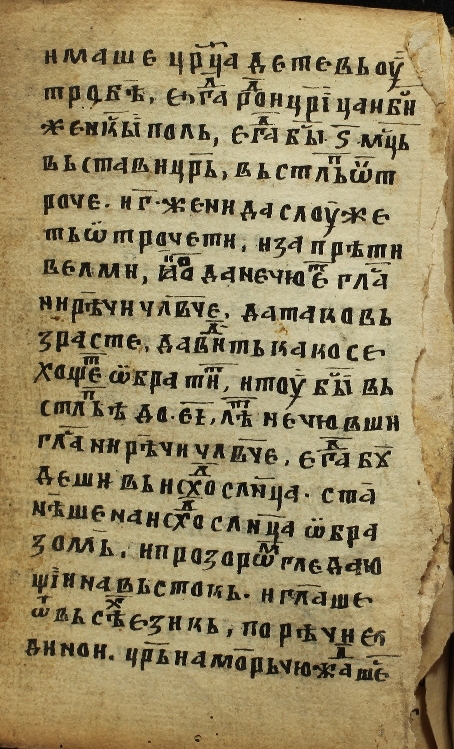 имаше цр҃ца детевьоу҆
тробѣ, егⷣа роⷣи црі҃цаиби҃
женкы҃і поль, егⷣа бы҃ ѕ҃ мц҃ь
вьставицр҃ь, вьстлⷫьѿт
роче. и г҃ жени даслоуже
тьѿтрочети, изапрѣти
велми, но данечюеⷮ гла҃
нирѣчичл҃вче, датаковь
зрасте, давиⷣть какосе
хощеⷮ ѿбратити, итоу бы҃і вь
стлⷫьѣ до еі҃, лѣⷮ нечювши
гла҃нирѣчичл҃вче, егⷣа бꙋ
деши вьисхоⷣ слн҃ца. ста
нѣшенаисхоⷣ слн҃ца ѿбра
зомь. ипрозорѡⷨ гледаю
щіи навьстокь. игл҃аше
ѿ вьсѣⷯ езикь, порѣчиеⷣ
динои. цр҃ь наморьчюжⷣаше